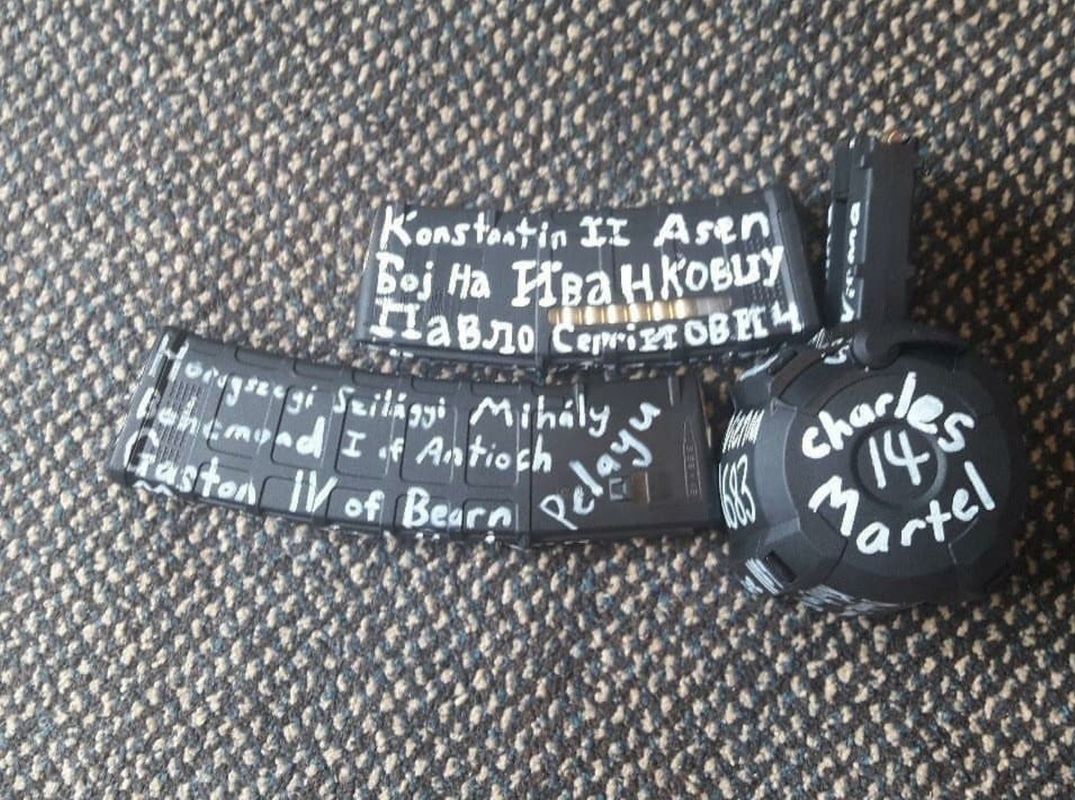 Konstantin II Asen
Бој На Иванковцу
Павло
Horogszegi Szilágyi Mihály
Bohemond I of Antioch
Gaston IV of Bearn
Pelayu
Charles
14
Martel